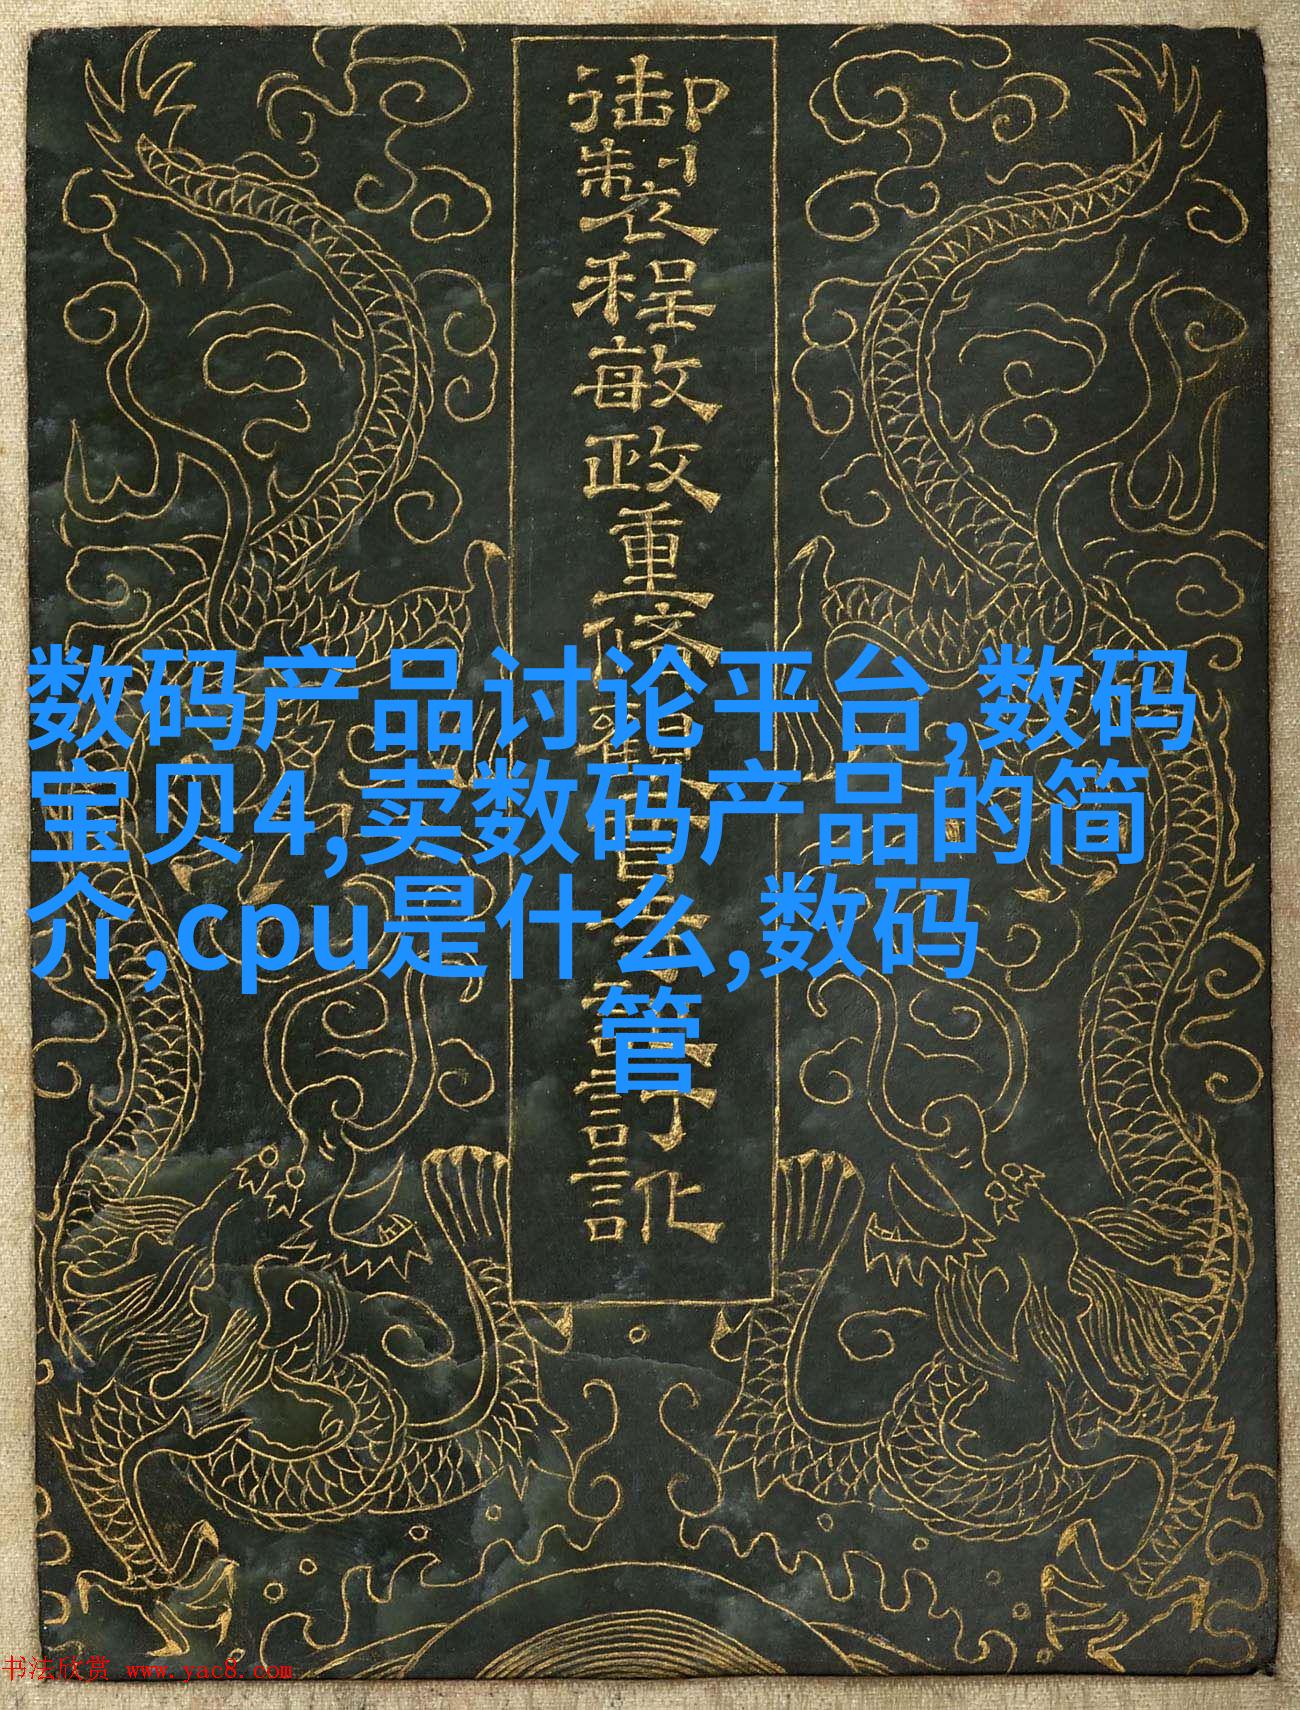 御製程敏政重修
訂訛
数码产品讨论平台,数码
宝贝4,卖数码产品的简
介,cpu是什么,数码
管
书法欣赏 www.yac8.com